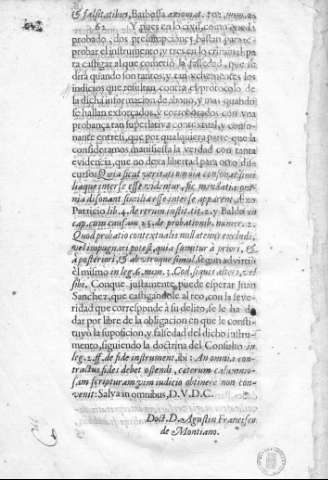 & falsitatibus, Barbossa axiomat. 102. num.
Y pues en lo civil, como queda
probado, dos presumpciones bastan para
probar el instrumento, y tres en lo criminal para
castigar al que cometiò la falsedad, que se
dirà quando son tantos, y tan vehementes los
indicios que resultan contra el protocolo de
la dicha informacion de abono, y mas quando
se hallan exforçados, y corroborados con vna
probança tan superlativa contextual, y consonante
entre si, que por qualquiera parte que la
consideramos manifiesta la verdad con tanta
evidencia, que no dexa libertad para otro discurso:
Quia sicut veritati omnia consonat simi
liaque inter se esse videntur, sic mendatia omnia
disonant similia esse inter se apparent, dixo
Patricio lib. 4. de rerum instit. tit. 2. y Baldo in
cap. cum causam 25. de probationib. numer. 2.
Quod probatio contextualis
vel impugnari potest, quia sumitur à priori, &
à posteriori, & ab utroque simul segun advirtiò
el mismo in leg. 6. num. 3. Cod. si quis alteri, vel
sibi. Conque justamente puede esperar Juan
Sanchez, que castigandole al reo, con la severidad
que corresponde à su delito, se le ha de
dar por libre de la obligacion en que le constituyò
la suposicion, y falsedad del dicho instrumento,
siguiendo la doctrina del Consulto in
leg. 2. ff. de fide instrument. ibi: An omnia contractus
fides debet ostendi, ceterum calumniosam
scripturam vim iudicio obtinere non convenit:
Salva in omnibus, D. V. D. C.
Doct. D. Agustin Francisco
de Montiano.